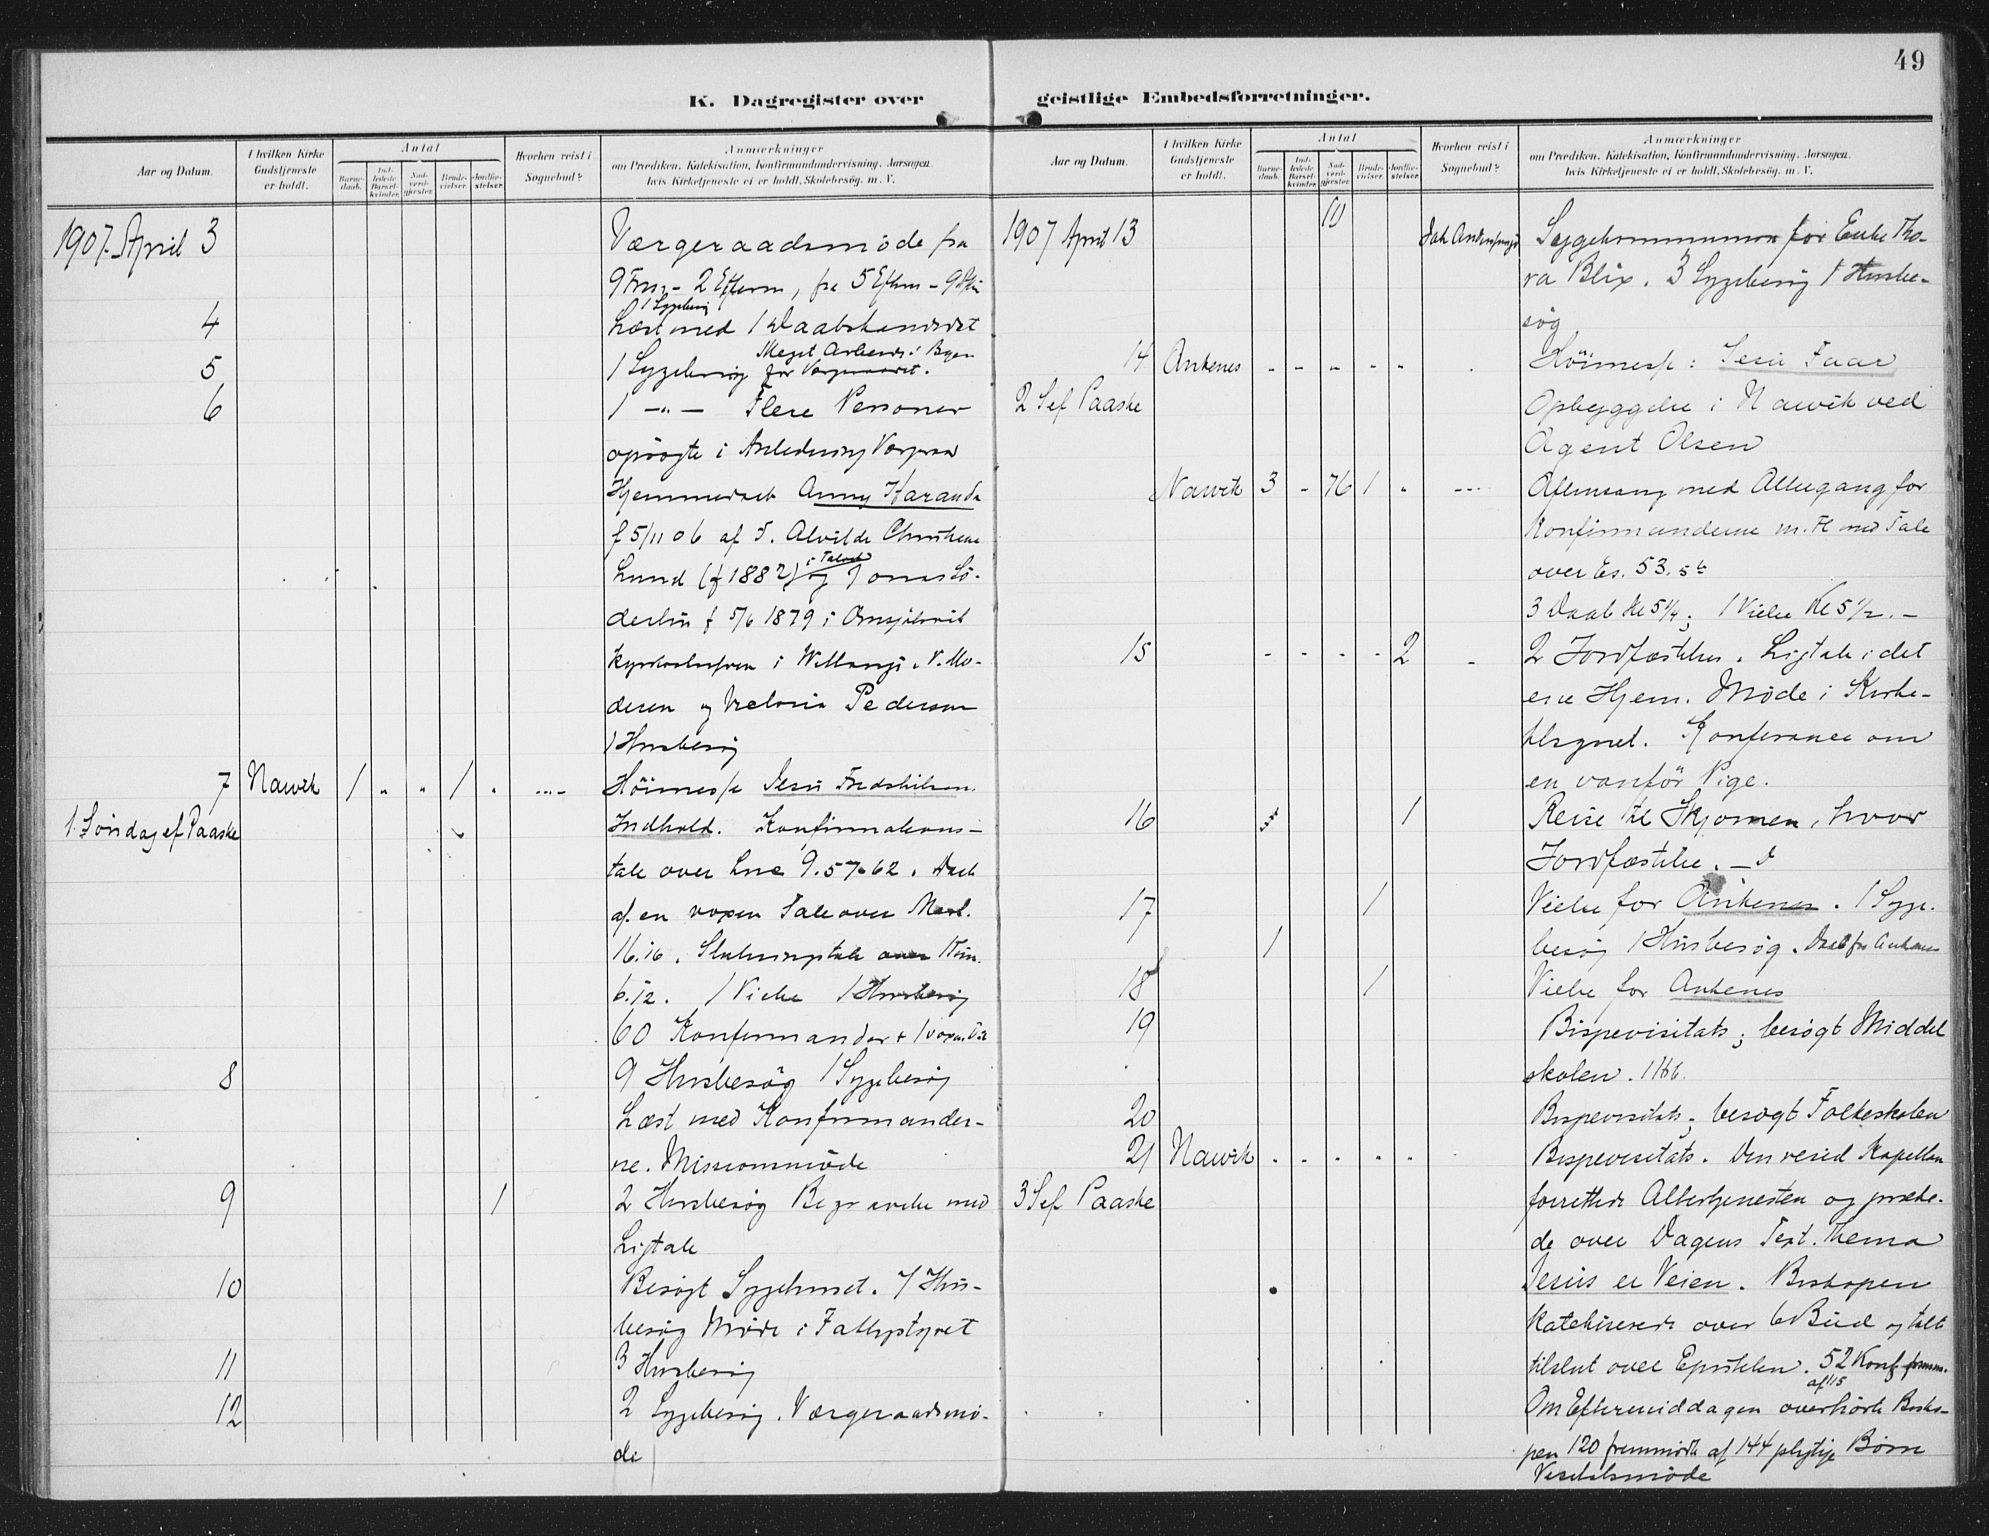 49
K. Dagregister over geistlige Embedsforretninger.
Aar og Datum.
I hvilken Kirke Gudstjeneste er holdt.
Antal
Barnedaab.
Indledede Barselkvinder.
Nadverdgjester.
Brudevielser.
Jordfæstelser.
Hvorhen reist i Sognebud?
Anmærkninger
om Prædiken, Katekisation, Konfirmandundervisning, Aarsagen,
hvis Kirketjeneste ei er holdt, Skolebesøg, m. V.
1907 April 3 Værgeraadsmøde fra
9 Frm - 2 Efterm, fra 5 Efterm - 9 Efm
1 Sygebesøg
4 Læst med 1 Daabskandidat
Meget Arbeide i Byen
5 1 Sygebesøg for Værgeraadet.
6 1 -"- Flere Personer
opsøgte i Anledning Værgeraad
Hjemmedøbt Anny Haranda
f 5/11 06 af Alvilde Christine
Lund (f 1882) og Jonas Sö-
derlin f 5/6 1879 i
i N. Mo-
desen og Pedersen
1 Husbesøg
7 Narvik 1 " " 1 " Höimesse Jesu Fredshilsen
1. Søndag ef Paaske Indhold. Konfirmations-
tale over Luc 9.57-62. Daab
af en voxen Tale over Mark.
16.16. Slutningstale over 1 Tim.
6.12. 1 Vielse 1 Husbesøg
60 Konfirmander + 1 voxen
8 9 Husbesøg 1 Sygebesøg
Læst med Konfirmander-
ne. Missionsmøde
9 1 2 Husbesøg Begravelse med
Ligtale
10 Besøgt Sygehuset. 7 Hus-
besøg Møde i Fattigstyret
11 3 Husbesøg
12 2 Sygebesøg. Værgeraadsmø-
de
Aar og Datum.
I hvilken Kirke Gudstjeneste er holdt.
Antal
Barnedaab.
Indledede Barselkvinder.
Nadverdgjester.
Brudevielser.
Jordfæstelser.
Hvorhen reist i Sognebud?
Anmærkninger
om Prædiken, Katekisation, Konfirmandundervisning, Aarsagen,
hvis Kirketjeneste ei er holdt, Skolebesøg, m. V.
1907 April 13 10 Sygekommunion for Enke Tho-
ra Blix. 3 Sygebesøg 1 Husbe-
søg
14 Ankenes - - - - - Höimesse: Jesu Faar
2 S ef Paaske Opbyggelse i Narvik ved
Agent Olsen
Narvik 3 - 76 1 " Aftensang med Altergang for
Konfirmanderne m. Fl med Tale
over Es. 53. 5 6
3 Daab Kl 5 1/4; 1 Vielse Kl 5 1/2. -
15 - - - - 2 - 2 Jordfæstelser. Ligtale i det
ene Hjem. Møde i Kirke-
tilsynet. Konferance om
en vanför Pige.
16 1 Reise til Skjomen, hvor
Jordfæstelse.
17 1 Vielse for Ankenes. 1 Syge-
1 besøg 1 Husbesøg. Daab for Ankenes
18 1 Vielse for Ankenes
19 Bispevisitats; besøgt Middel
skolen. 1 Hb.
20 Bispevisitats; besøgt Folkeskolen
21 Narvik - - - - - Bispevisitats. Den resid Kapellan
3 S ef Paaske forrettede Altertjenesten og præke-
de over Dagens Text. Thema
Jesus er Veien. Biskopen
Katekiserede over 6 Bud og talte
tilslut over Epistelen. 52 Konf fremm.
af 115
Om Eftermiddagen overhørte Bisko-
pen 120 fremmødte af 144 pligtige Børn
Visitatsmøde